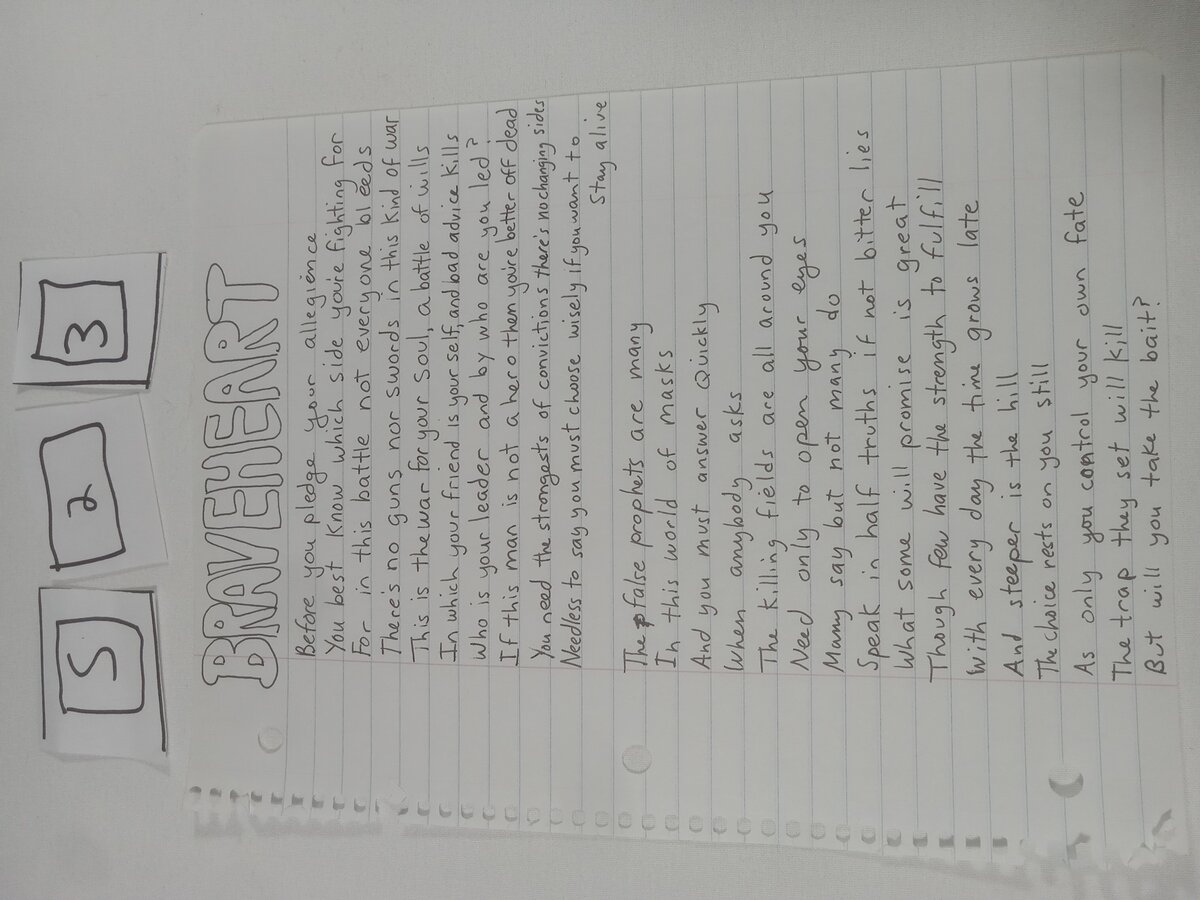 S
2
3
BRAVEHEART
Before you pledge your allegience
You best know which side you're fighting for
For in this battle not everyone bleeds
There's no guns nor swords in this kind of war
This is the war for your soul, a battle of wills
In which your friend is your self, and bad advice kills
Who is your leader and by who are you led?
If this man is not a hero then you're better off dead
You need the strongests of convictions there's no changing sides
Needless to say you must choose wisely if you want to
Stay alive
The false prophets are many
In this world of masks
And you must answer quickly
When anybody asks
The killing fields are all around you
Need only to open your eyes
Many say but not many do
Speak in half truths if not bitter lies
What some will promise is great
Though few have the strength to fulfill
With every day the time grows late
And steeper is the hill
The choice rests on you still
As only you control your own fate
The trap they set will kill
But will you take the bait?